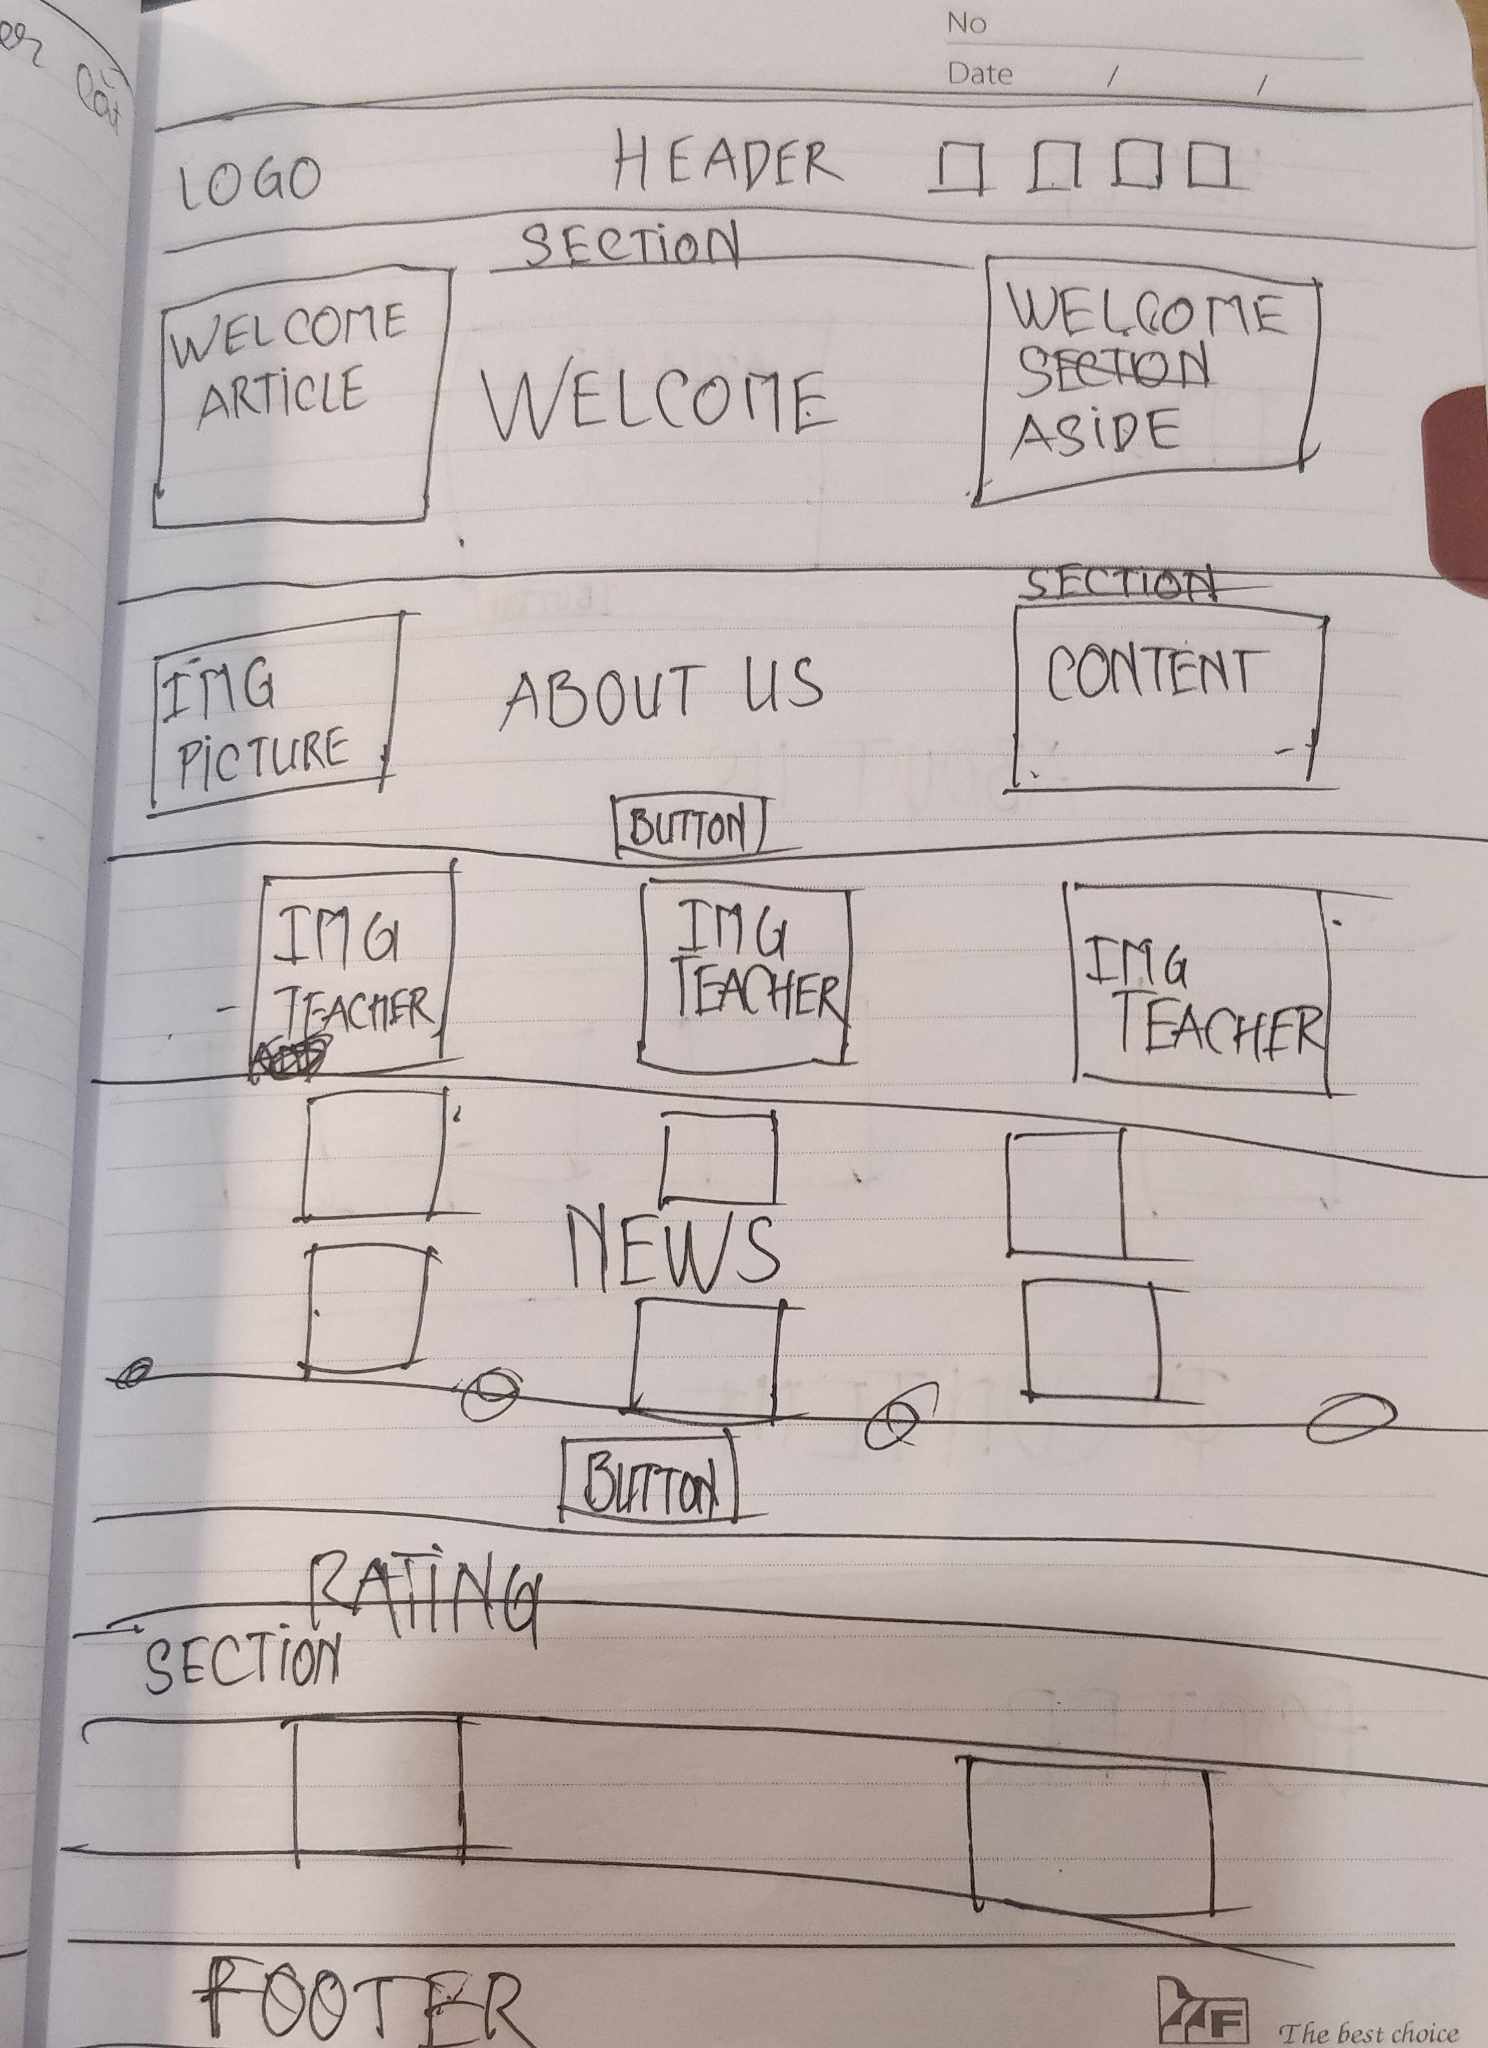 No
Date / /
LOGO HEADER
SECTION
WELCOME
ARTICLE
WELCOME
WELCOME
SECTION
ASIDE
SECTION
IMG
PICTURE
ABOUT US
CONTENT
BUTTON
IMG
TEACHER
IMG
TEACHER
IMG
TEACHER
NEWS
BUTTON
RATING
SECTION
FOOTER
F
The best choice